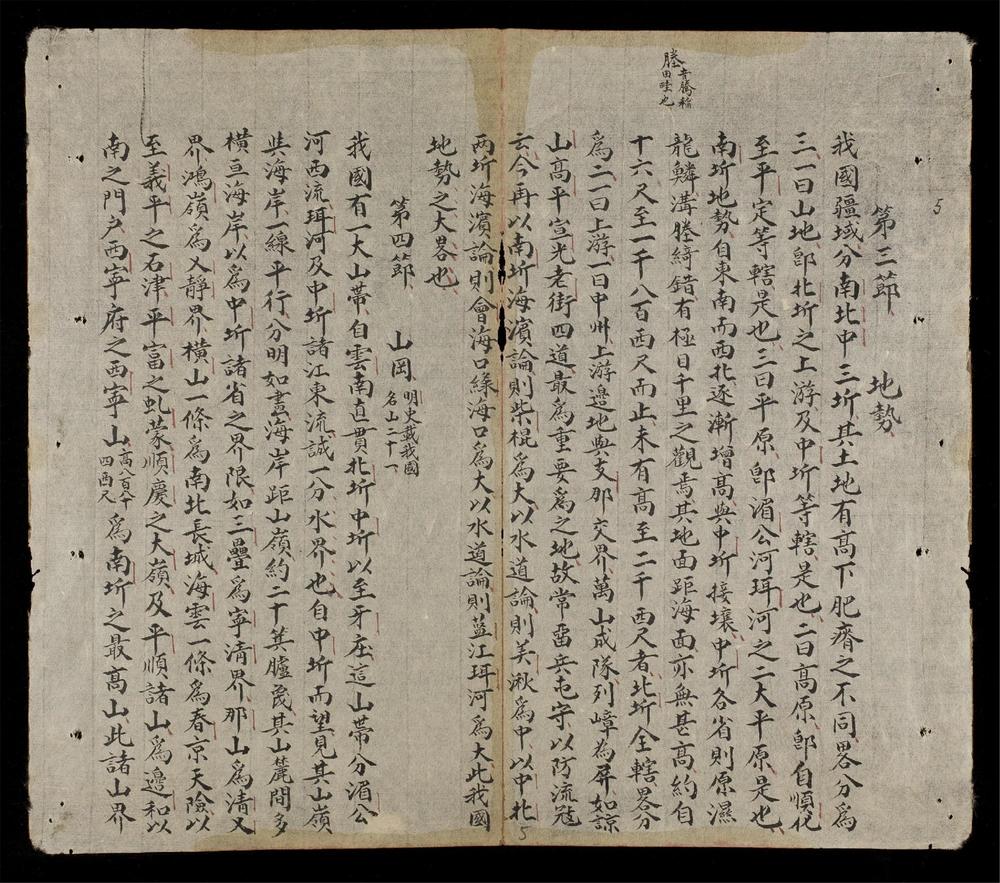 塍音騰稲
田畦也
5
第三節　地勢
我國疆域分南北中三圻其土地有高下肥瘠之不同畧分為
三一曰山地卽北圻之上游及中圻等轄是也二曰高原卽自順化
至平定等轄是也三曰平原卽湄公河珥河之二大平原是也
南圻地勢自東南而西北逐漸增高與中圻接壤中圻各省則原濕
龍鱗溝塍綺錯有極目千里之觀焉其地面距海面亦無甚高約自
十六尺至一千八百西尺而止未有高至二千西尺者北圻全轄畧分
為二一曰上游一曰中州上游邉地與支那交界萬山成隊列嶂為屏如諒
山高平宣光老街四道最為重要為之地故常畱兵屯守以防流冦
云今再以南圻海濱論則柴棍為大以水道論則美湫為中以中北
5
兩圻海濱論則會海口綠海口為大以水道論則藍江珥河為大此我國
地勢之大畧也
第四節　山岡 明史載我國
名山二十一
我國有一大山帶自雲南直貫北圻中圻以至牙庄這山帶分湄公
河西流珥河及中圻諸江東流誠一分水界也自中圻而望見其山嶺
與海岸一線平行分明如畫海岸距山嶺約二十箕臚㡬其山麓間多
橫亘海岸以為中圻諸省之界限如三疊為寧清界那山為清乂
界鴻嶺為乂靜界橫山一條為南北長城海雲一條為春京天險以
至義平之石津平富之虬蒙順慶之大嶺及平順諸山為邊和以
南之門户西寧府之西寧山高八百八十
四西尺為南圻之最高山此諸山界